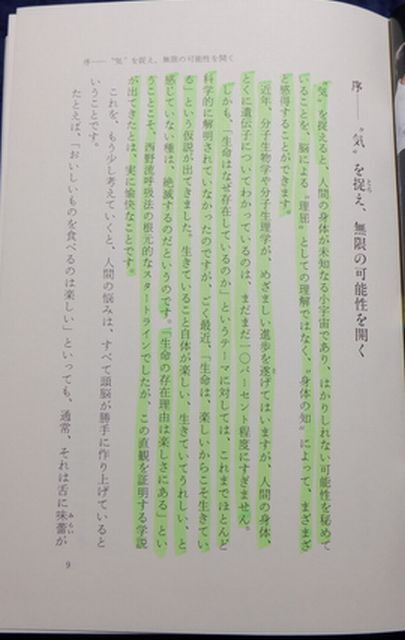 序――〝気〟を捉え、無限の可能性を開く
序――〝気〟を捉え、無限の可能性を開く
とら
〝気〟を捉えると、人間の身体が未知なる小宇宙であり、はかりしれない可能性を秘めて
いることを、脳による〝理屈〟としての理解ではなく、〝身体の知〟によって、まざまざ
と感得することができます。
近年、分子生物学や分子生理学が、めざましい進歩を遂げてはいますが、人間の身体、
とくに遺伝子についてわかっているのは、まだまだ一〇パーセント程度にすぎません。
しかも、「生命はなぜ存在しているのか」というテーマに対しては、これまでほとんど
科学的に解明されていなかったのですが、ごく最近、「生命は、楽しいからこそ生きてい
る」という仮説が出てきました。生きていること自体が楽しい、生きていてうれしい、と
感じていない種は、絶滅するのだというのです。「生命の存在理由は楽しさにある」とい
うことこそ、西野流呼吸法の根元的なスタートラインでしたが、この直観を証明する学説
が出てきたとは、実に愉快なことです。
これを、もう少し考えていくと、人間の悩みは、すべて頭脳が勝手に作り上げていると
いうことです。
たとえば、「おいしいものを食べるのは楽しい」といっても、通常、それは舌に味蕾が
みらい
9